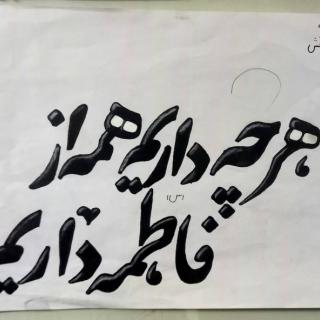 هرچه داریم همه از
فاطمه (س) داریم